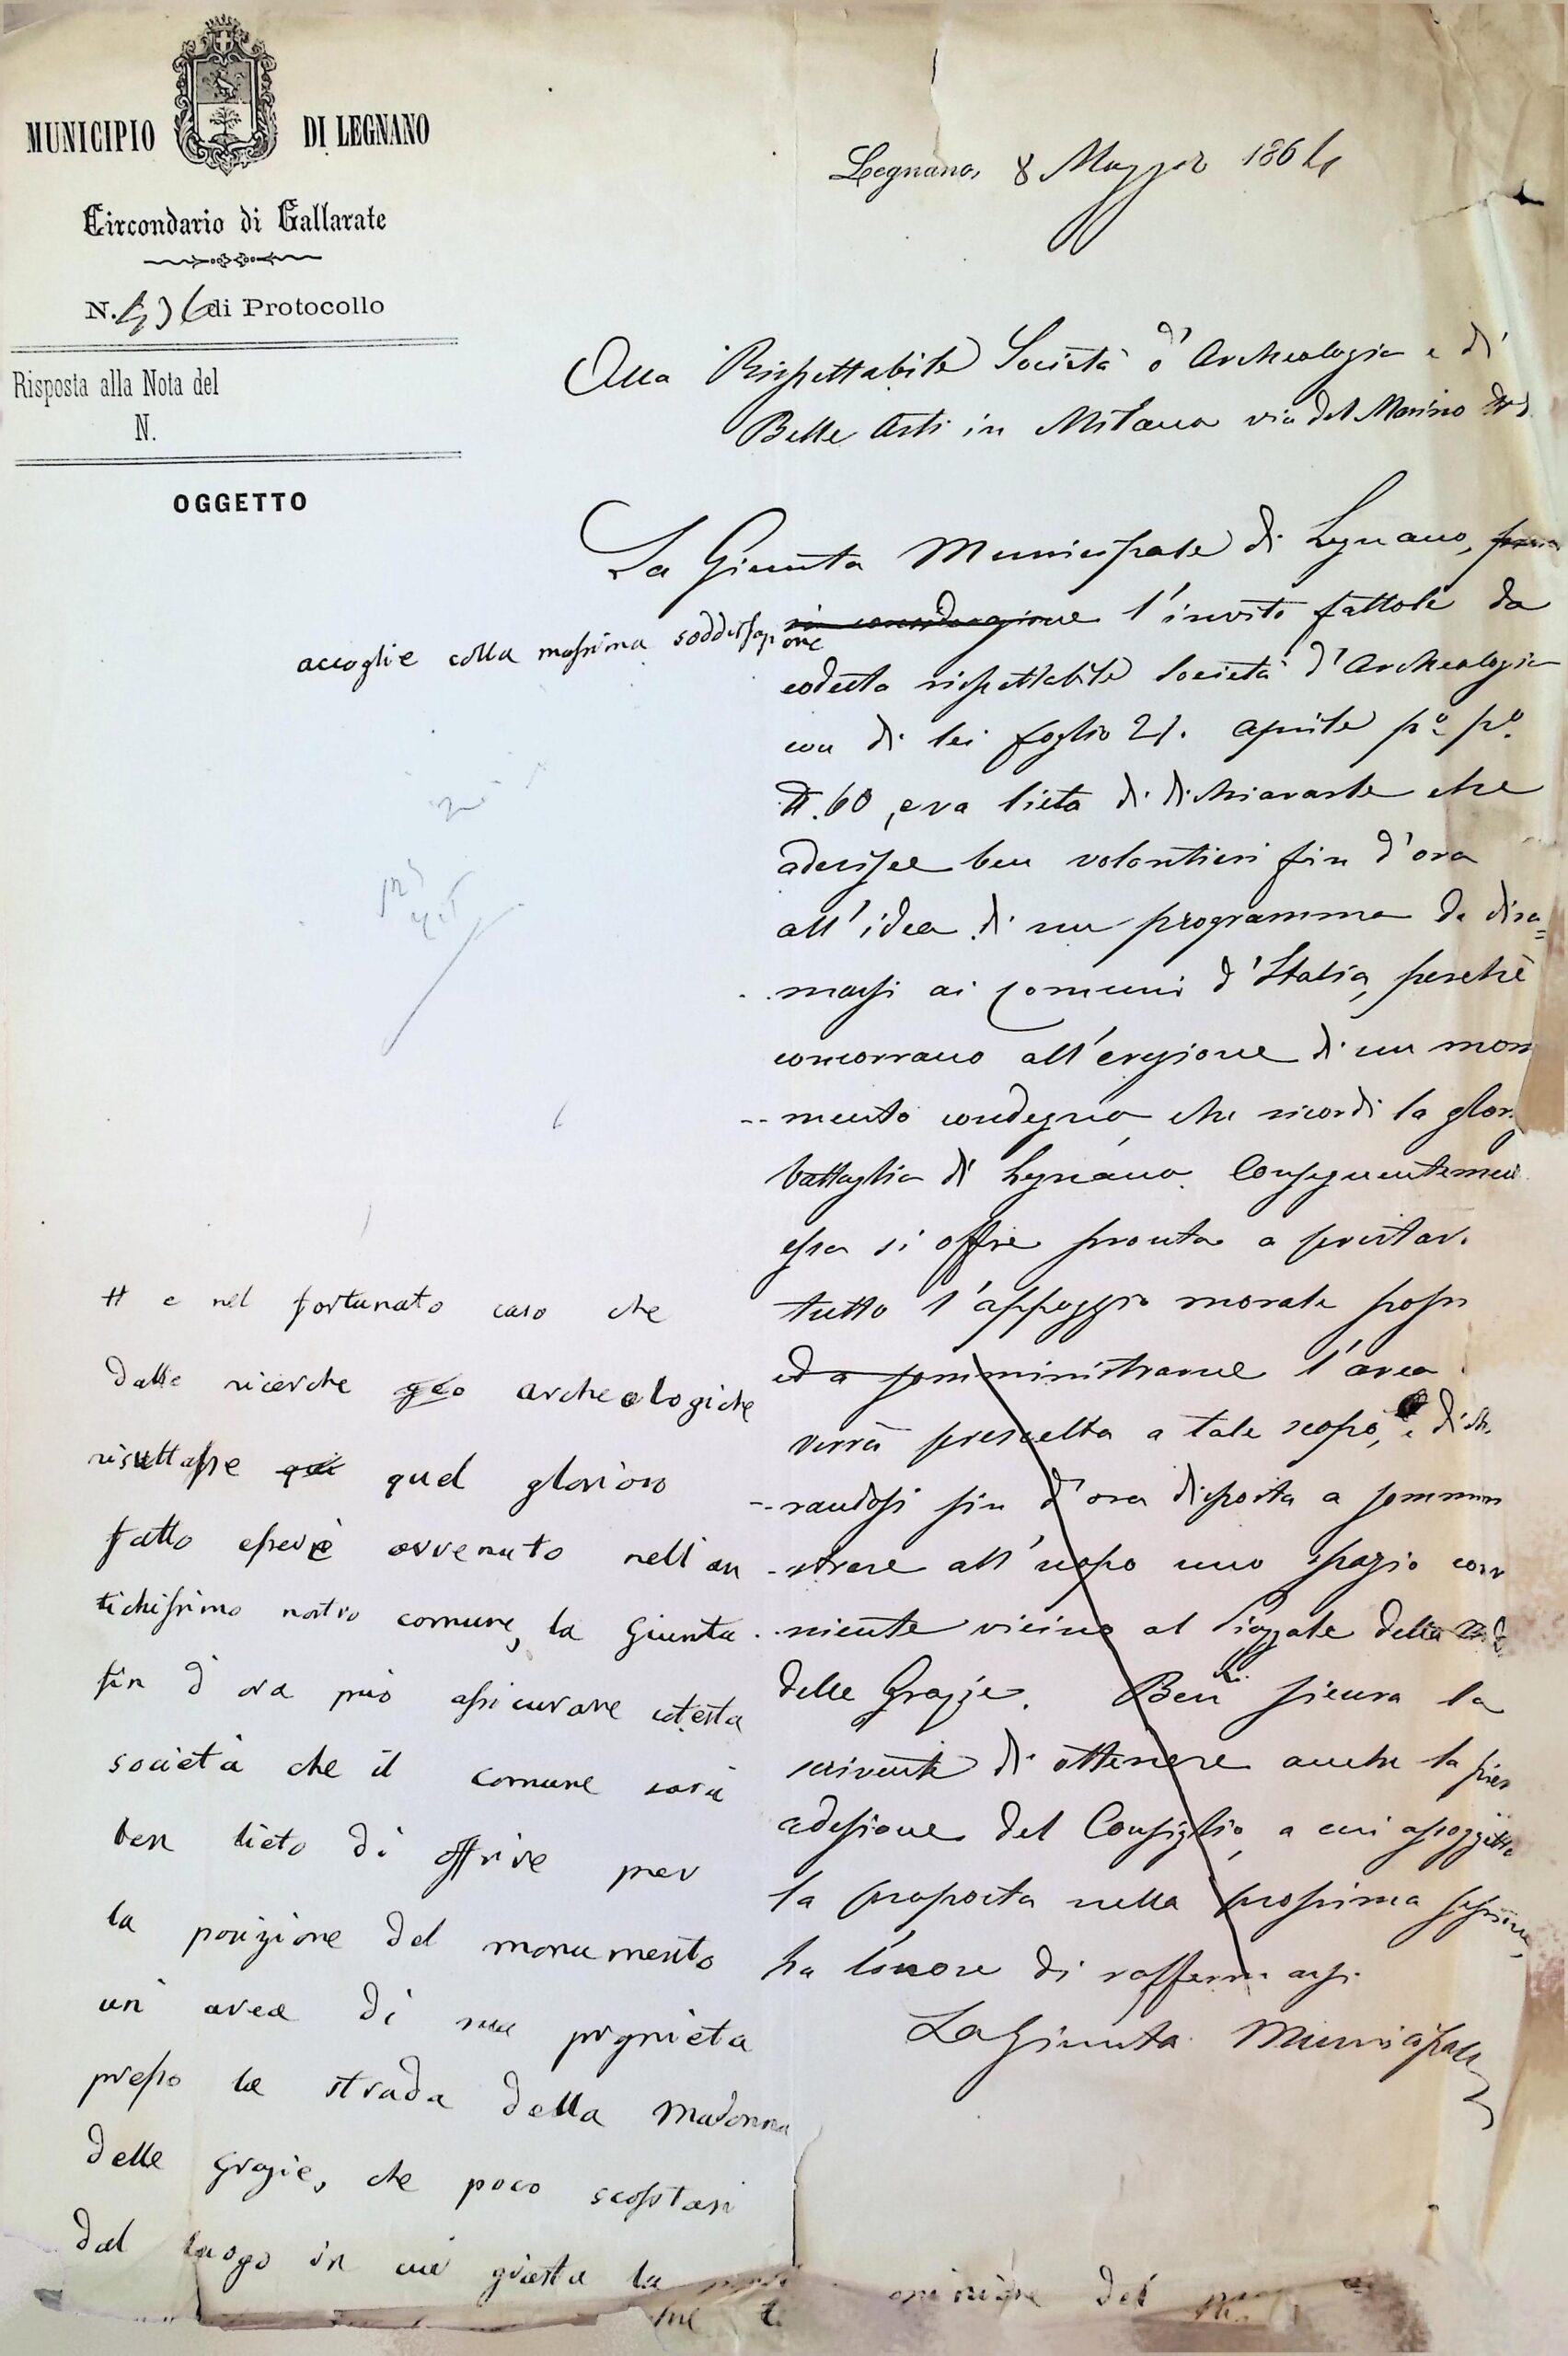 MUNICIPIO DI LEGNANO
Circondario di Gallarate
N. di Protocollo
Risposta alla Nota del
N.
OGGETTO
Legnano, 8 Maggio 1864
Alla Rispettabile Società d'Archeologia e di
Belle Arti in Milano via del Marino
La Giunta Municipale di Legnano,
accoglie colla massima soddisfazione
in considerazione l'invito fattole da
codesta rispettabile Società d'Archeologia
con di lei foglio 21. aprile p.º p.º
N. 60, e va lieta di dichiararle che
aderisce ben volontieri fin d'ora
all'idea di un programma da dira=
marsi ai comuni d'Italia, perchè
concorrano all'erezione di un mon
mento condegno che ricordi la glor
battaglia di Legnano. Conseguentemen
essa si offre pronta a prestar
tutto l'appoggio morale
ed a somministrare l'area
verrà prescelta a tale scopo, e dich
randosi fin d'ora disposta a sommin
strare all'uopo uno spazio conv
niente vicino al Piazzale della
delle Grazie. Ben sicura la
scrivente di ottenere anche la
adesione del Consiglio, a cui assoggetta
la proposta nella prossima sessione,
ha l'onore di raffermarsi.
La Giunta Municipale
# e nel fortunato caso che
dalle ricerche geo archeologiche
risultasse qui quel glorioso
fatto essere avvenuto nell'an
tichissimo nostro comune, la Giunta
fin d'ora può assicurare cotesta
società che il comune sarà
ben lieto di offrire per
la posizione del monumento
un'area di sua proprietà
presso la strada della Madonna
delle Grazie, che poco scostasi
dal luogo in cui giusta la
opinione del